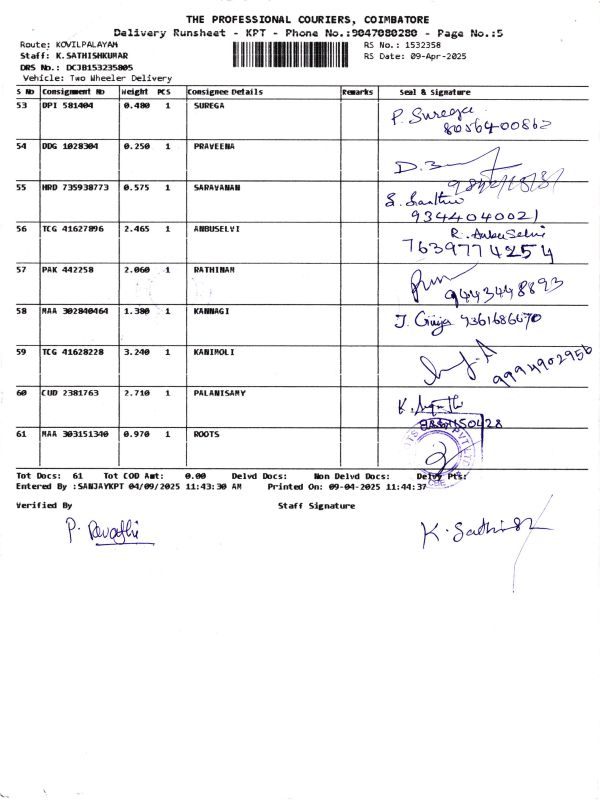 THE PROFESSIONAL COURIERS, COIMBATORE
Delivery Runsheet - KPT - Phone No.:9047080280 - Page No.:5
Route: KOVILPALAYAM RS No.: 1532358
Staff: K.SATHISHKUMAR RS Date: 09-Apr-2025
DRS No.: DCJB153235805
Vehicle: Two Wheeler Delivery
S No Consignment No Weight PCS Consignee Details Remarks Seal & Signature
53 DPI 581404 0.480 1 SUREGA P. Surega
8056400862
54 DDG 1028304 0.250 1 PRAVEENA
55 HRD 735938773 0.575 1 SARAVANAN
9344040021
56 TCG 41627896 2.465 1 ANBUSELVI R. AnbuSelvi
7639774254
57 PAK 442258 2.060 1 RATHINAM
9443448893
58 MAA 302840464 1.380 1 KANNAGI J. Girija 9361686670
59 TCG 41628228 3.240 1 KANIMOLI
9994902956
60 CUD 2381763 2.710 1 PALANISAMY
61 MAA 303151340 0.970 1 ROOTS
Tot Docs: 61 Tot COD Amt: 0.00 Delvd Docs: Non Delvd Docs: Delvy Pts:
Entered By :SANJAYKPT 04/09/2025 11:43:30 AM Printed On: 09-04-2025 11:44:37
Verified By Staff Signature
P. Revathi